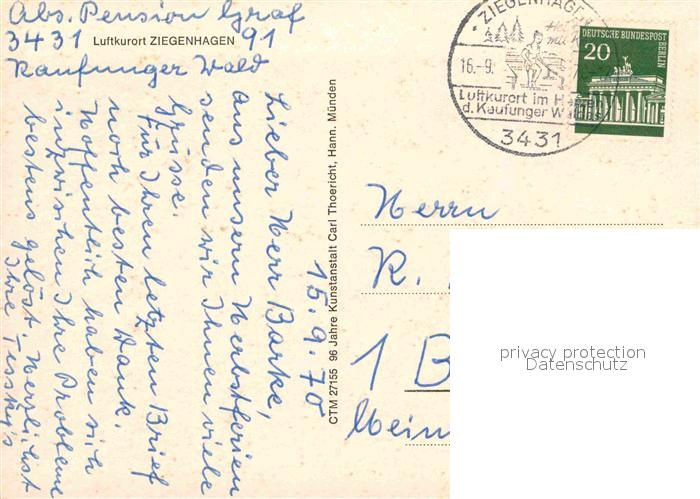 Abs. Pension Graf
3431 Luftkurort ZIEGENHAGEN 91
Kaufunger Wald
15.9.70
Lieber Herr Barke,
aus unsern Herbstferien
senden wir Ihnen viele
Grüsse.
Für Ihren letzten Brief
noch besten Dank.
Hoffentlich haben sich
inzwischen Ihre Probleme
bestens gelöst. Herzlichst
Ihre Tessky's
CTM 27155 96 Jahre Kunstanstalt Carl Thoericht, Hann. Münden
ZIEGENHAGEN
16.-9.
Luftkurort im
d. Kaufunger
3431
DEUTSCHE BUNDESPOST
BERLIN
20
Herrn
R.
1 B
privacy protection
Datenschutz